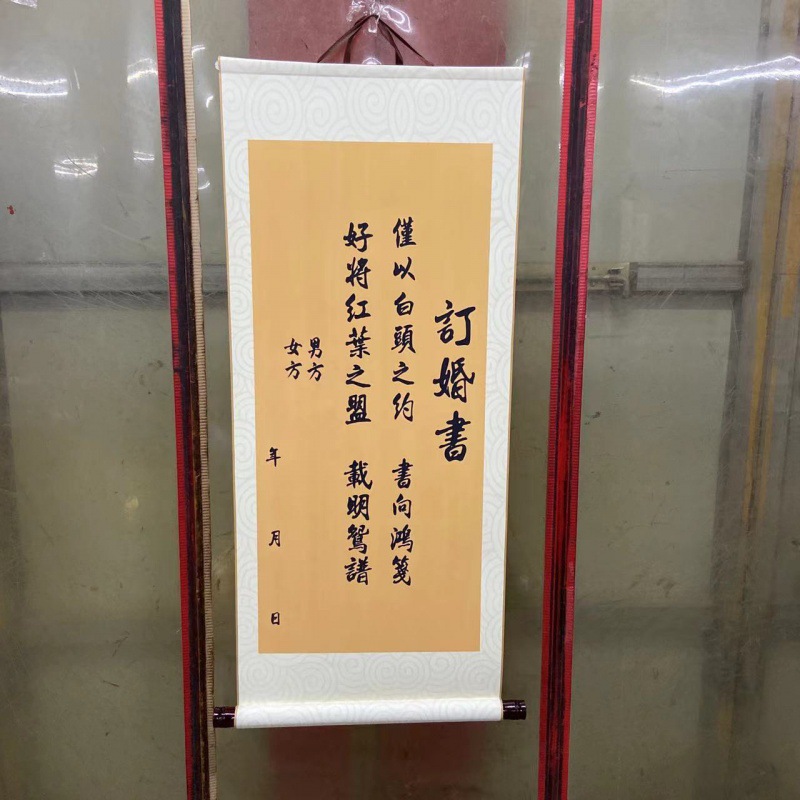 訂婚書
僅以白頭之约 書向鴻箋
好将红葉之盟 載明鴛譜
男方
女方
年 月 日